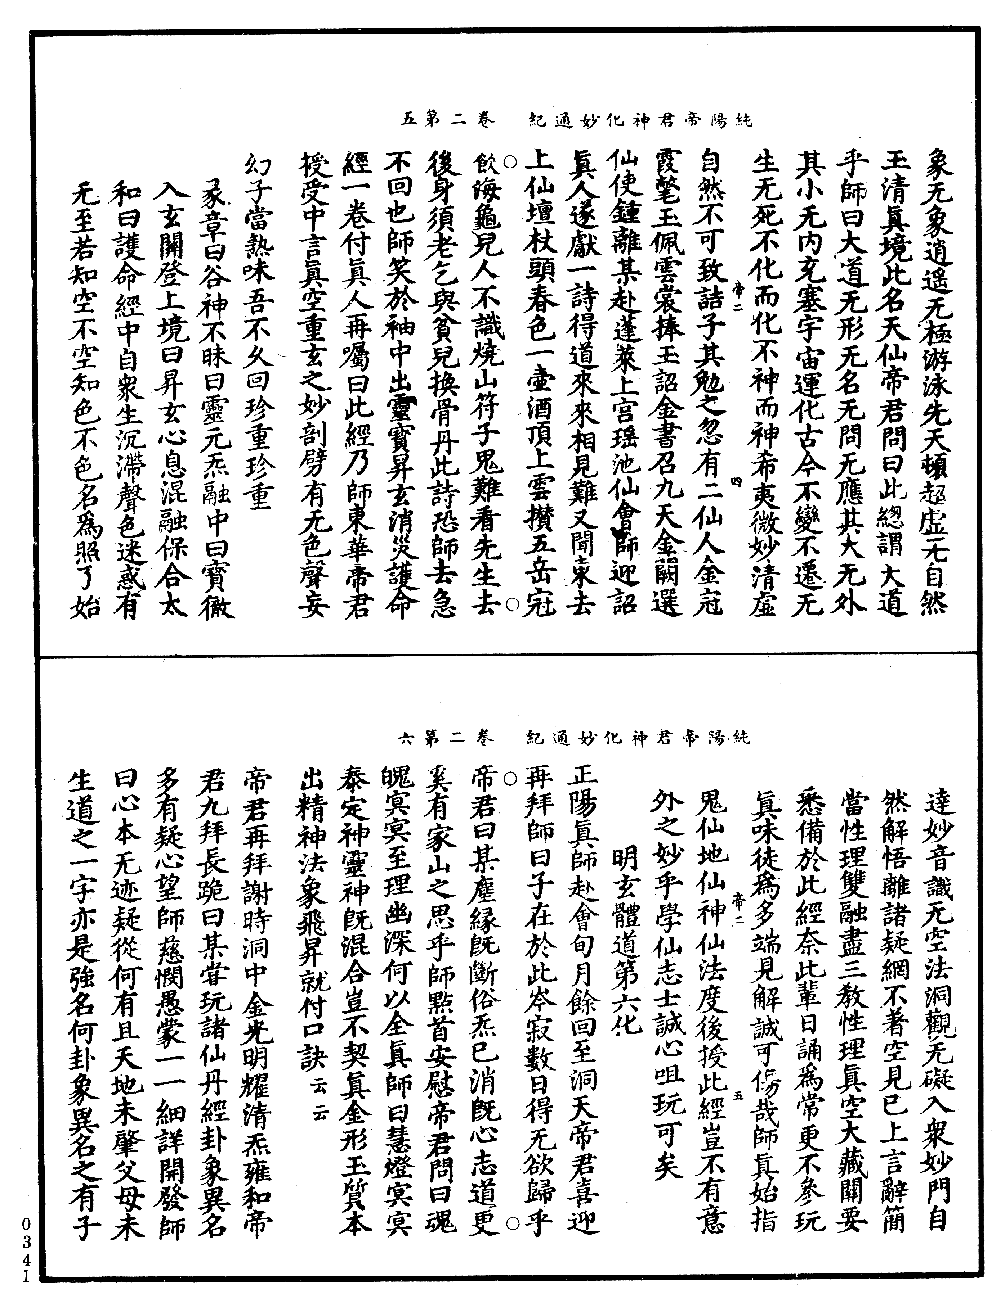 純陽帝君神化妙通紀　卷二第五
象无象逍遥无極游泳先天頓超虛无自然
玉清眞境此名天仙帝君問曰此總謂大道
乎師曰大道无形无名无問无應其大无外
其小无內充塞宇宙運化古今不變不遷无
生无死不化而化不神而神希夷微妙清虛
帝二　四
自然不可致詰子其勉之忽有二仙人金冠
霞氅玉佩雲裳捧玉詔金書召九天金闕選
仙使鍾離某赴蓬萊上宫瑶池仙會師迎詔
眞人遂獻一詩得道來來相見難又聞東去
上仙壇杖頭春色一壺酒頂上雲攢五岳冠
飲海龜兒人不識燒山符子鬼難看先生去
後身須老乞與貧兒換骨丹此詩恐師去急
不回也師笑於袖中出靈寶昇玄消災護命
經一卷付眞人再囑曰此經乃師東華帝君
授受中言眞空重玄之妙剖劈有无色聲妄
幻子當熟味吾不久回珍重珍重
彖章曰谷神不昧曰靈元炁融中曰寶徹
入玄關登上境曰昇玄心息混融保合太
和曰護命經中自衆生沉滯聲色迷惑有
无至若知空不空知色不色名爲照了始
純陽帝君神化妙通紀　卷二第六
達妙音識无空法洞觀无礙入衆妙門自
然解悟離諸疑網不著空見已上言辭簡
當性理雙融盡三教性理眞空大藏關要
悉備於此經奈此輩日誦爲常更不參玩
眞味徒爲多端見解誠可傷哉師眞始指
帝二　五
鬼仙地仙神仙法度後授此經豈不有意
外之妙乎學仙志士誠心咀玩可矣
明玄體道第六化
正陽眞師赴會旬月餘回至洞天帝君喜迎
再拜師曰子在於此岑寂數日得无欲歸乎
帝君曰某塵緣旣斷俗炁已消旣心志道更
奚有家山之思乎師點首安慰帝君問曰魂
魄冥冥至理幽深何以全眞師曰慧燈冥冥
泰定神靈神旣混合豈不契眞金形玉質本
出精神法象飛昇就付口訣云云
帝君再拜謝時洞中金光明耀清炁雍和帝
君九拜長跪曰某甞玩諸仙丹經卦象異名
多有疑心望師慈憫愚蒙一一細詳開發師
曰心本无迹疑從何有且天地未肇父母未
生道之一字亦是強名何卦象異名之有子
0341